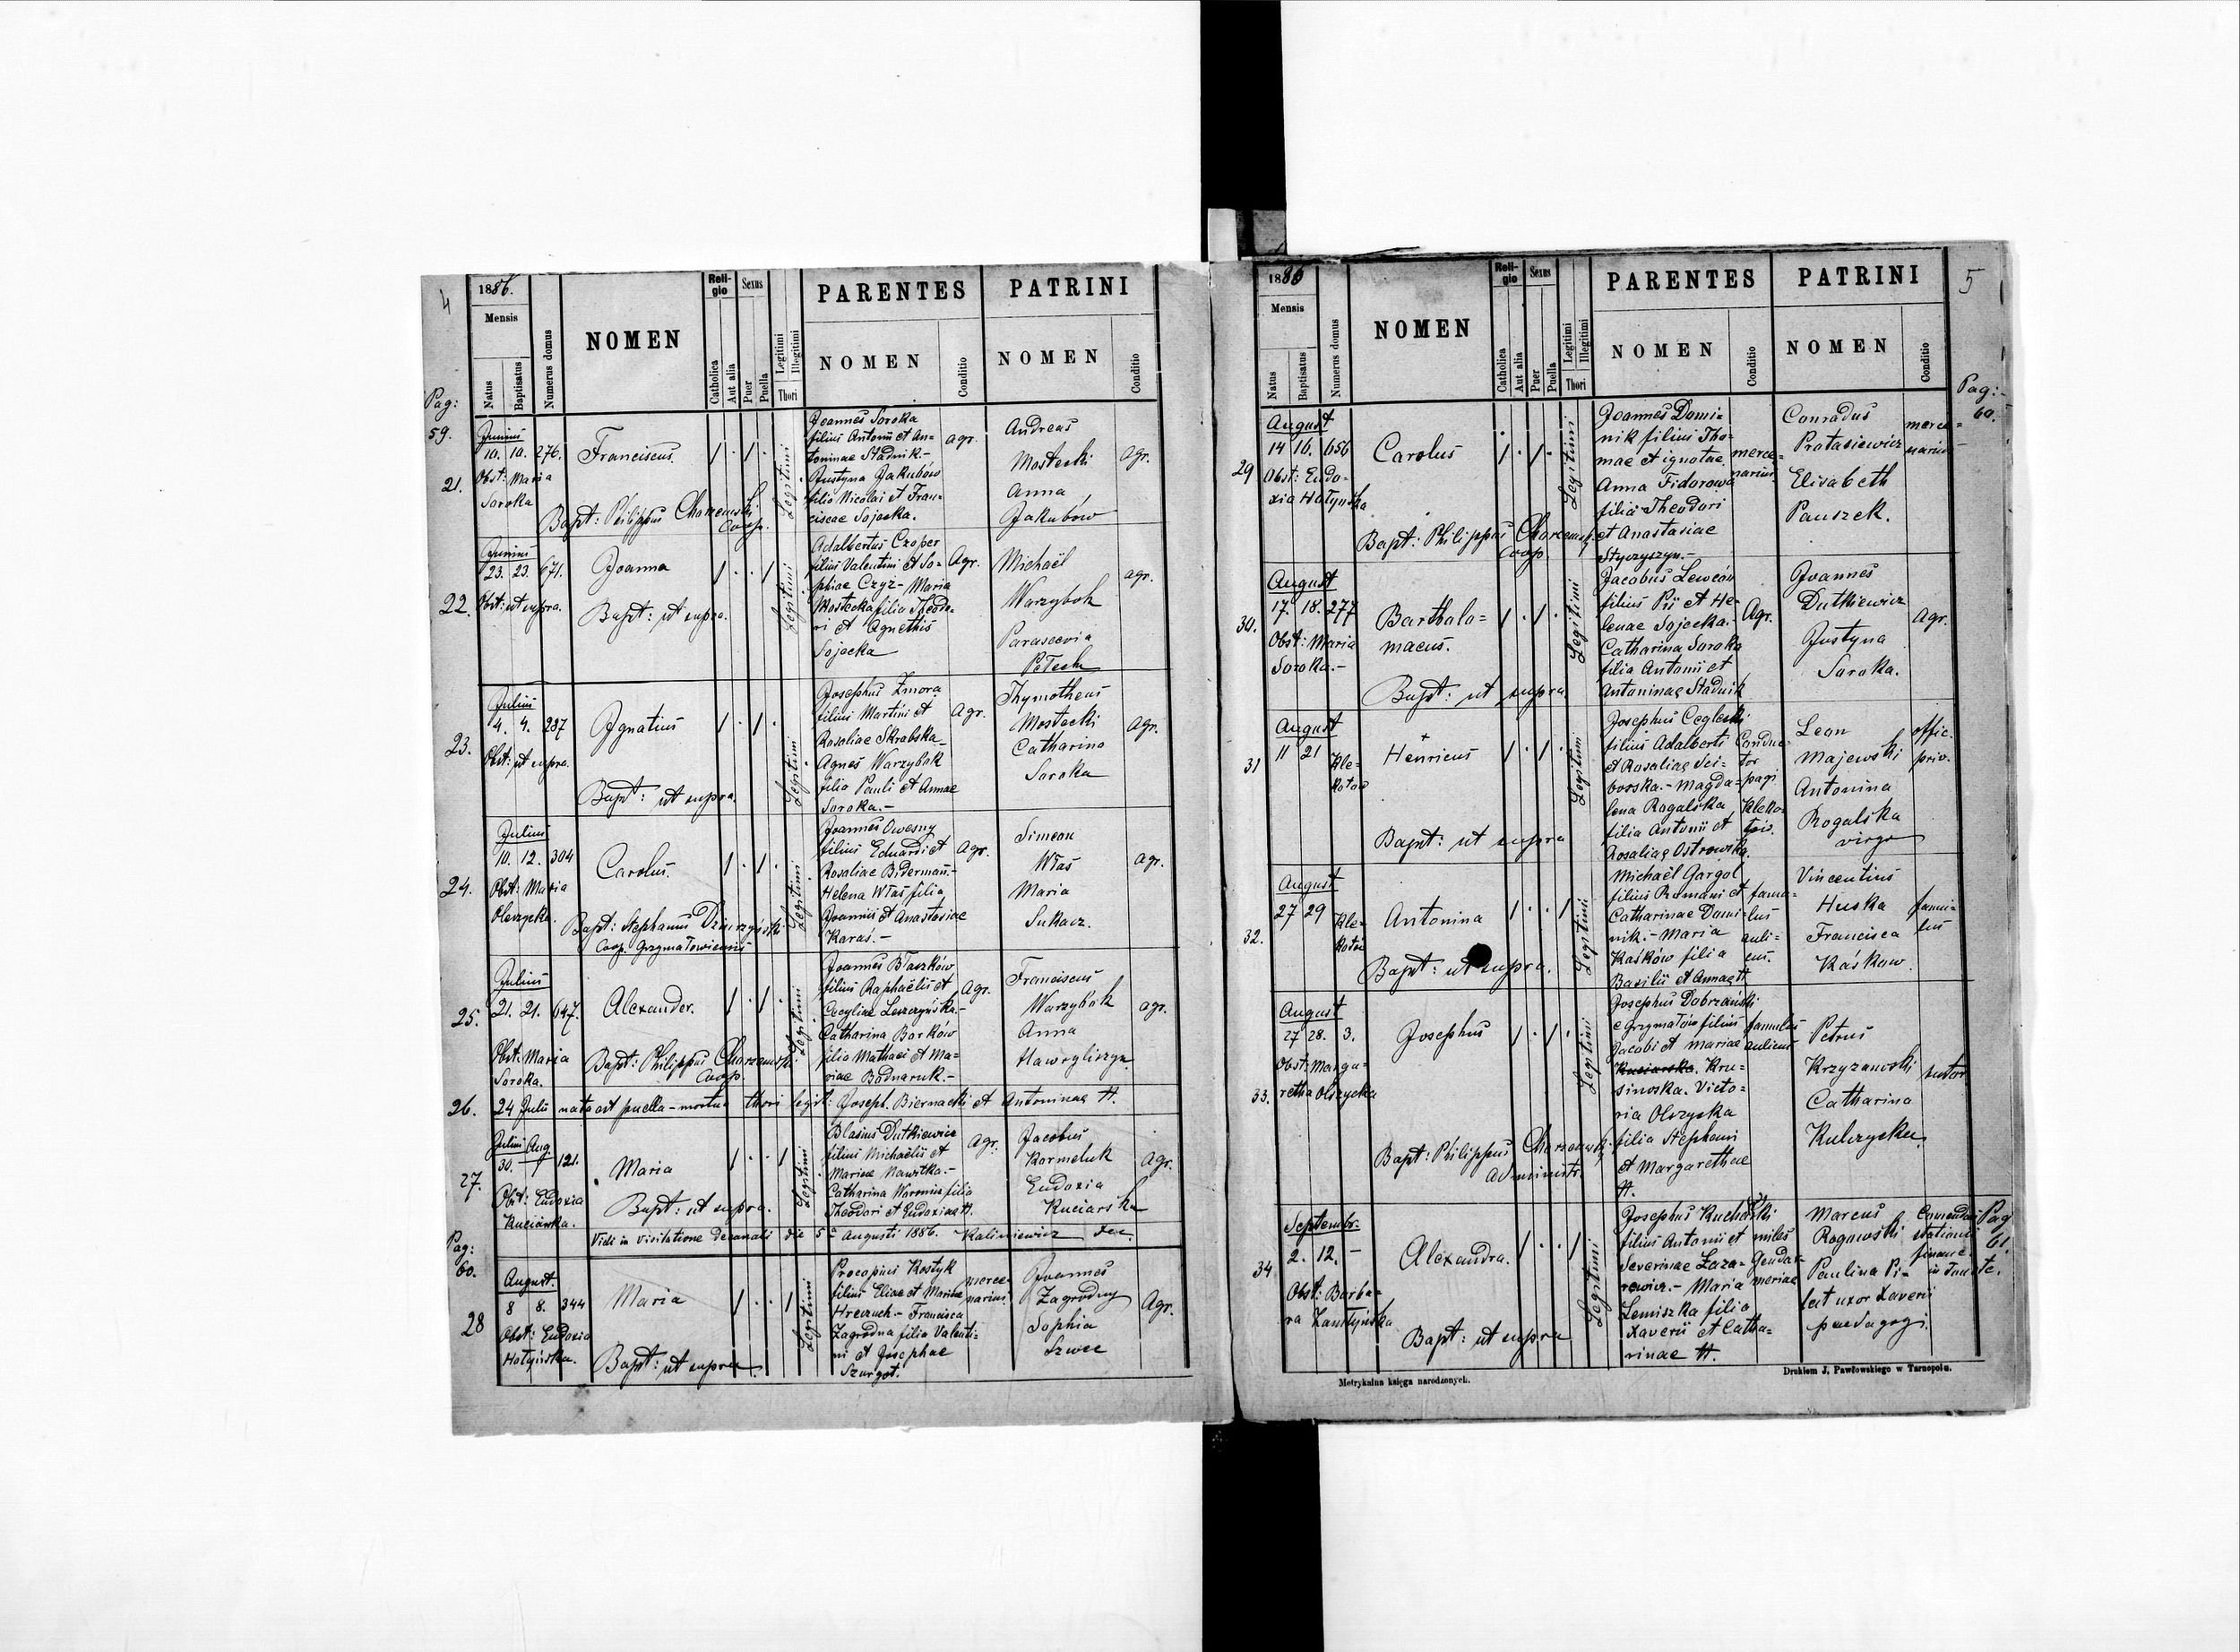 4
1886.
Mensis
Natus
Baptisatus
Numerus domus
NOMEN
Religio
Catholica
Aut alia
Sexus
Puer
Puella
Legitimi
Illegitimi
Thori
PARENTES
NOMEN
Conditio
PATRINI
NOMEN
Conditio
Pag:
59.
21.
Junius
10. 10. 276.
Obst: Maria
Soroka
Franciscus.
Bapt: Philippus Charzewski
Coop.
Legitimi
Joannes Soroka
filius Antonii et An-
toninae Stadnik -
Justyna Jakubów
filia Nicolai et Fran-
ciscae Sojecka.
Agr.
Andreas
Mostecki
Anna
Jakubów
Agr.
22.
Junius
23. 23. 671.
Obst: ut supra.
Joanna
Bapt: ut supra.
Legitimi
Adalbertus Czoper
filius Valentini et So-
phiae Czyż - Maria
Mostecka filia Theodo-
ri et Agnethis
Sojecka
Agr.
Michaël
Warzybok
Parascevia
Petech
agr.
23.
Julius
4. 4. 287
Obst: ut supra.
Ignatius
Bapt: ut supra.
Legitimi
Josephus Zmora
filius Martini et
Rosaliae Skrabska
Agnes Warzybok
filia Pauli et Annae
Soroka.-
Agr.
Thymotheus
Mostecki
Catharina
Soroka
Agr.
24.
Julius
10. 12. 304
Obst: Maria
Olszycka.
Carolus.
Bapt: Stephanus
Coop. Grzymałowiensis
Legitimi
Joannes Owesny
filius Eduardi et
Rosaliae Biderman.-
Helena Właś filia
Joannis et Anastasiae
Karaś.-
Agr.
Simeon
Właś
Maria
Sukacz.
Agr.
25.
Julius
21. 21. 647.
Obst: Maria
Soroka.
Alexander.
Bapt: Philippus Charzewski
Coop.
Legitimi
Joannes Błaszków
filius Raphaëlis et
Cecyliae Leszczyńska.-
Catharina Borków
filia Mathaei et Ma-
riae Bodnaruk.-
Agr.
Franciscus
Warzybok
Anna
Hawryliszyn
agr.
26.
24 Julii nata est puella - mortua thori legit: Joseph. Biernacki et Antoninae H.
27.
Julius Aug.
30. 1 121.
Obst: Eudoxia
Kuciarska.
Maria
Bapt: ut supra.
Legitimi
Blasius Dutkiewicz
filius Michaëlis et
Mariae Nawitka.-
Catharina Woronis filia
Theodori et Eudoxiae H.
Agr.
Jacobus
Kormeluk
Eudoxia
Kuciarska
Agr.
Vidi in visitatione Decanali die 5a Augusti 1886. Kaliniewicz Dec.
Pag:
60.
28
August.
8 8. 344
Obst: Eudoxia
Hołyńska.
Maria
Bapt: ut supra.
Legitimi
Procopius Kostyk
filius Eliae et Mariae
Hreczuch.- Francisca
Zagrodna filia Valenti-
ni et Josephae
Szurgot.
merce-
narius
Joannes
Zagrodny
Sophia
Szwec
Agr.
5
1886
Mensis
Natus
Baptisatus
Numerus domus
NOMEN
Religio
Catholica
Aut alia
Sexus
Puer
Puella
Legitimi
Illegitimi
Thori
PARENTES
NOMEN
Conditio
PATRINI
NOMEN
Conditio
Pag:-
60.
29
August
14 16. 656
Obst: Eudo-
xia Hołyńska
Carolus
Bapt: Philippus Charzewski
Coop.
Legitimi
Joannes Domi-
nik filius Tho-
mae et ignotae.
Anna Fidorowa
filia Theodori
et Anastasiae
Styczyszyn.-
merce-
narius
Conradus
Protasiewicz
Elisabeth
Pauszek.
merce-
narius
30.
August
17. 18. 277
Obst: Maria
Soroka.-
Bartholo=
maeus.
Bapt: ut supra
Legitimi
Jacobus Lewców
filius Pii et He-
lenae Sojecka.-
Catharina Soroka
filia Antonii et
Antoninae Stadnik
Agr.
Joannes
Dutkiewicz
Justyna
Soroka.
Agr.
31
August
11 21
Kle-
kotów
Henricus
Bapt: ut supra
Legitimi
Josephus Ceglecki
filius Adalberti
et Rosaliae Sci-
borska.- Magda-
lena Rogalska
filia Antonii et
Rosaliae Ostrowska.
Conduc-
tor
pagi
Kleko-
tów.
Leon
Majewski
Antonina
Rogalska
virgo
offic.
priv.
32.
August
27 29
Kle-
kotów
Antonina
Bapt: ut supra.
Legitimi
Michaël Gargol
filius Romani et
Catharinae Domi-
nik.- Maria
Kaśków filia
Basilii et Annae H
famu-
lus
auli-
cus.
Vincentius
Huska
Francisca
Kaśkow
famu-
lus
33.
August
27 28. 3.
Obst: Marga-
retha Olszycka
Josephus
Bapt: Philippus Charzewski
Administr.
Legitimi
Josephus Dobrzański
e Grzymałów filius
Jacobi et Mariae
Kru-
sinoska. Victo-
ria Olszycka
filia Stephani
et Margarethae
H.
famulus
aulicus
Petrus
Krzyzanoski
Catharina
Kulczycka
sutor
34
Septembr.
2. 12. -
Obst: Barba-
ra Zamłyńska
Alexandra.
Bapt: ut supra
Legitimi
Josephus Kucharski
filius Antonii et
Severinae Laza-
rewicz.- Maria
Lemiszka filia
Xaverii et Catha-
rinae H.
miles
Gendar-
meriae
Marcus
Rogowski
Paulina Pi-
lat uxor Xaverii
paedagogi.
Comendans
stationis
financ.
in Touste.
Pag
61.
Metrykalna księga narodzonych.
Drukiem J. Pawłowskiego w Tarnopolu.